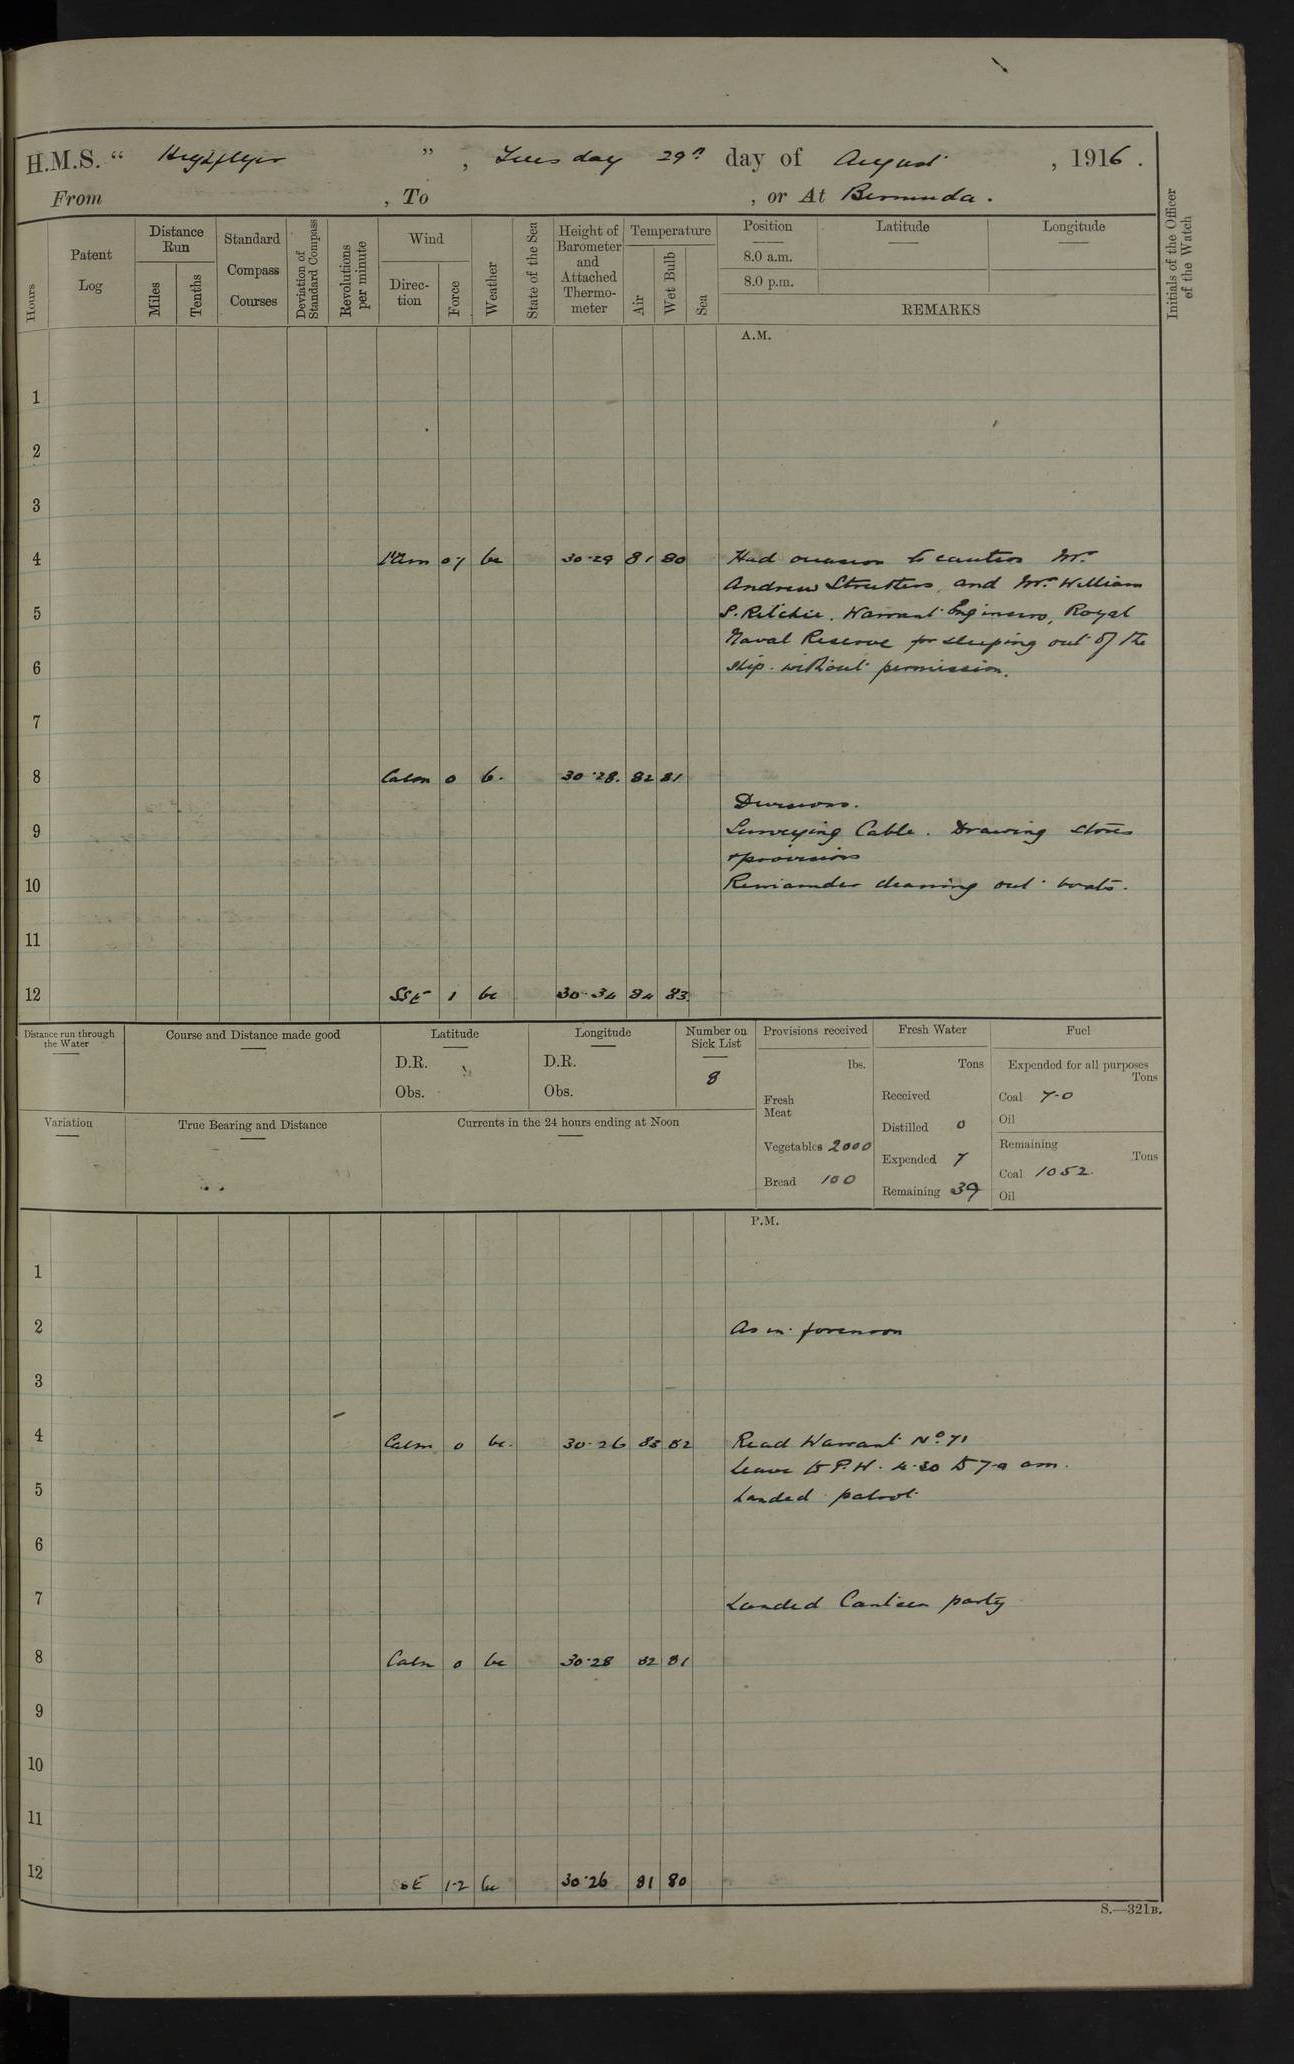 H.M.S. “ Highflyer ” , Tuesday 29th day of August , 1916 .
From , To , or At Bermuda .
Hours
Patent Log
Distance Run
Miles
Tenths
Standard Compass Courses
Deviation of Standard Compass
Revolutions per minute
Wind
Direction
Force
Weather
State of the Sea
Height of Barometer and Attached Thermometer
Temperature
Air
Wet Bulb
Sea
Position
8.0 a.m.
8.0 p.m.
Latitude
Longitude
REMARKS
Initials of the Officer of the Watch
A.M.
1
2
3
4 bc 30·29 81 80 Had occasion to caution Mr
Andrew Struthers and Mr William
5 S. Ritchie. Warrant Engineers, Royal
Naval Reserve for sleeping out of the
6 ship without permission.
7
8 Calm 0 b. 30·28. 82 81
Divisions.
9 Surveying Cable. Drawing stores
& provisions
10 Remainder cleaning out boats.
11
12 SSE 1 bc 30·34 84 83
Distance run through the Water
Course and Distance made good
Latitude
D.R.
Obs.
Longitude
D.R.
Obs.
Number on Sick List
8
Provisions received
lbs.
Fresh Meat
Vegetables 2000
Bread 100
Fresh Water
Tons
Received
Distilled 0
Expended 7
Remaining 39
Fuel
Expended for all purposes
Tons
Coal 7·0
Oil
Remaining
Tons
Coal 1052
Oil
Variation
True Bearing and Distance
Currents in the 24 hours ending at Noon
P.M.
1
2 As in forenoon
3
4 Calm 0 bc. 30·26 83 82 Read Warrant No. 71
Leave to P.W. 4·30 to 7·0 am.
5 Landed patrol
6
7 Landed Canteen party
8 Calm 0 bc 30·28 82 81
9
10
11
12 SE 1·2 bc 30·26 81 80
S.—321B.